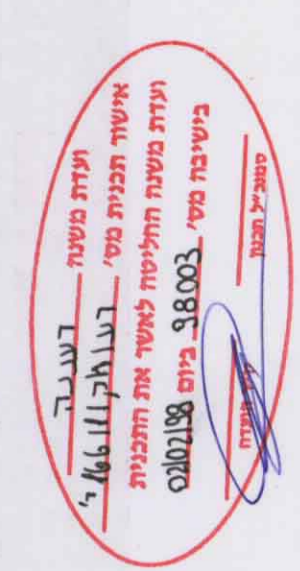 ועדת משנה רעננה
אישור תכנית מס'
ועדת משנה החליטה לאשר את התכנית
בישיבה מס' 98003 ביום 02/02/98
סמנכ"ל תכנון